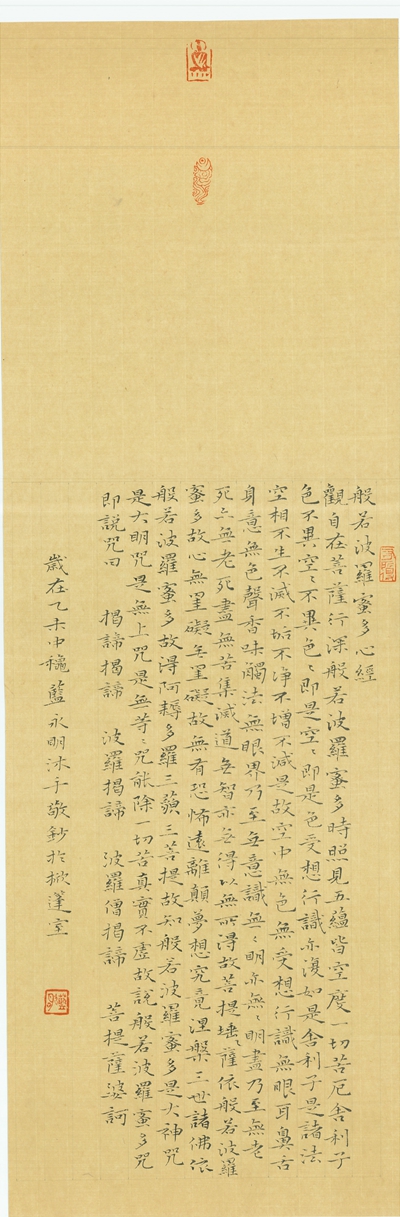 般若波羅蜜多心經
觀自在菩薩行深般若波羅蜜多時照見五蘊皆空度一切苦厄舍利子
色不異空〻不異色〻即是空〻即是色受想行識亦復如是舍利子是諸法
空相不生不滅不垢不淨不增不減是故空中無色無受想行識無眼耳鼻舌
身意無色聲香味觸法無眼界乃至无意識無〻明亦無〻明盡乃至無老
死亦無老死盡無苦集滅道無智亦无得以無所得故菩提埵薩依般若波羅
蜜多故心無罣礙无罣礙故無有恐怖遠離顛夢想究竟涅槃三世諸佛依
般若波羅蜜多故得阿耨多羅三藐三菩提故知般若波羅蜜多是大神咒
是大明咒是無上咒是無等〻咒能除一切苦真實不虛故說般若波羅蜜多咒
即說咒曰 揭諦揭諦 波羅揭諦 波羅僧揭諦 菩提薩婆訶
歲在乙未中穐藍永明沐手敬鈔於掀蓬室